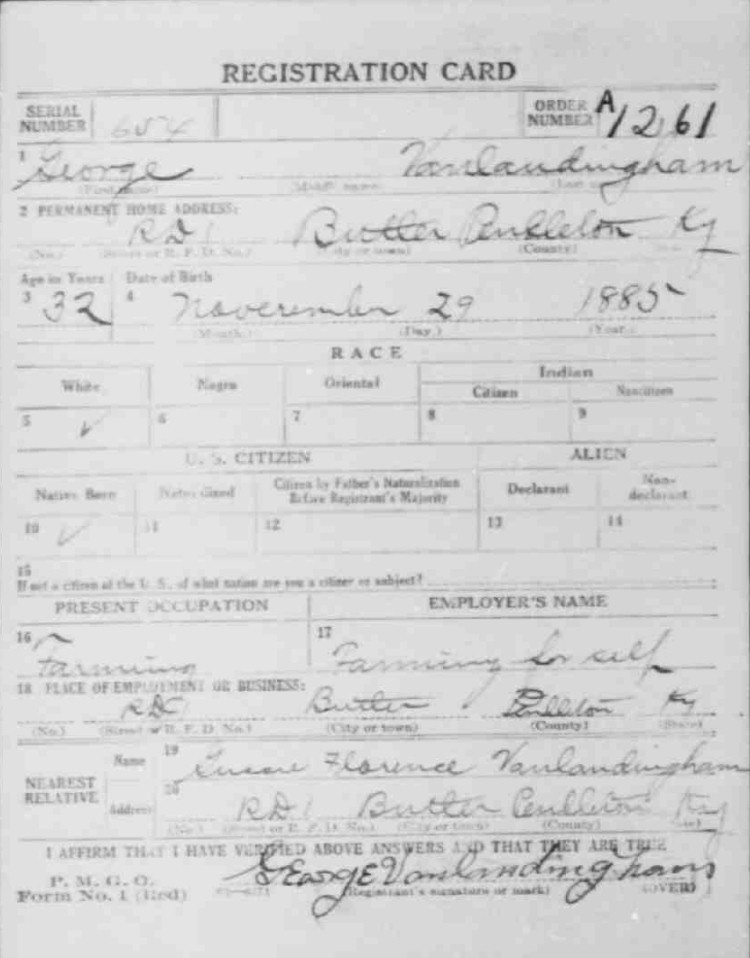 REGISTRATION CARD
SERIAL NUMBER 654 ORDER NUMBER A 1261
1 George Vanlandingham
(First name) (Middle name) (Last name)
2 PERMANENT HOME ADDRESS:
RD1 Butler Pendleton Ky
(No.) (Street or R. F. D. No.) (City or town) (County) (State)
Age in Years Date of Birth
3 32 4 Noverember 29 1885
(Month.) (Day.) (Year.)
RACE
White Negro Oriental Indian
Citizen Noncitizen
5 ✓ 6 7 8 9
U. S. CITIZEN ALIEN
Native Born Naturalized Citizen by Father's Naturalization Before Registrant's Majority Declarant Non-declarant
10 ✓ 11 12 13 14
15
If not a citizen of the U. S., of what nation are you a citizen or subject?
PRESENT OCCUPATION EMPLOYER'S NAME
16 Farming 17 Farming for self
18 PLACE OF EMPLOYMENT OR BUSINESS:
RD1 Butler Pendleton Ky
(No.) (Street or R. F. D. No.) (City or town) (County) (State)
NEAREST RELATIVE
Name 19 Florence Vanlandingham
Address 20 RD1 Butler Pendleton Ky
(No.) (Street or R. F. D. No.) (City or town) (County) (State)
I AFFIRM THAT I HAVE VERIFIED ABOVE ANSWERS AND THAT THEY ARE TRUE
P. M. G. O.
Form No. 1 (Red) George Vanlandingham
(Registrant's signature or mark) (OVER)